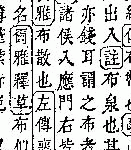 出入註布泉也其
亦錢耳謂之布者
諸侯入應門右皆
雅布散也左傳
名爾雅釋草布